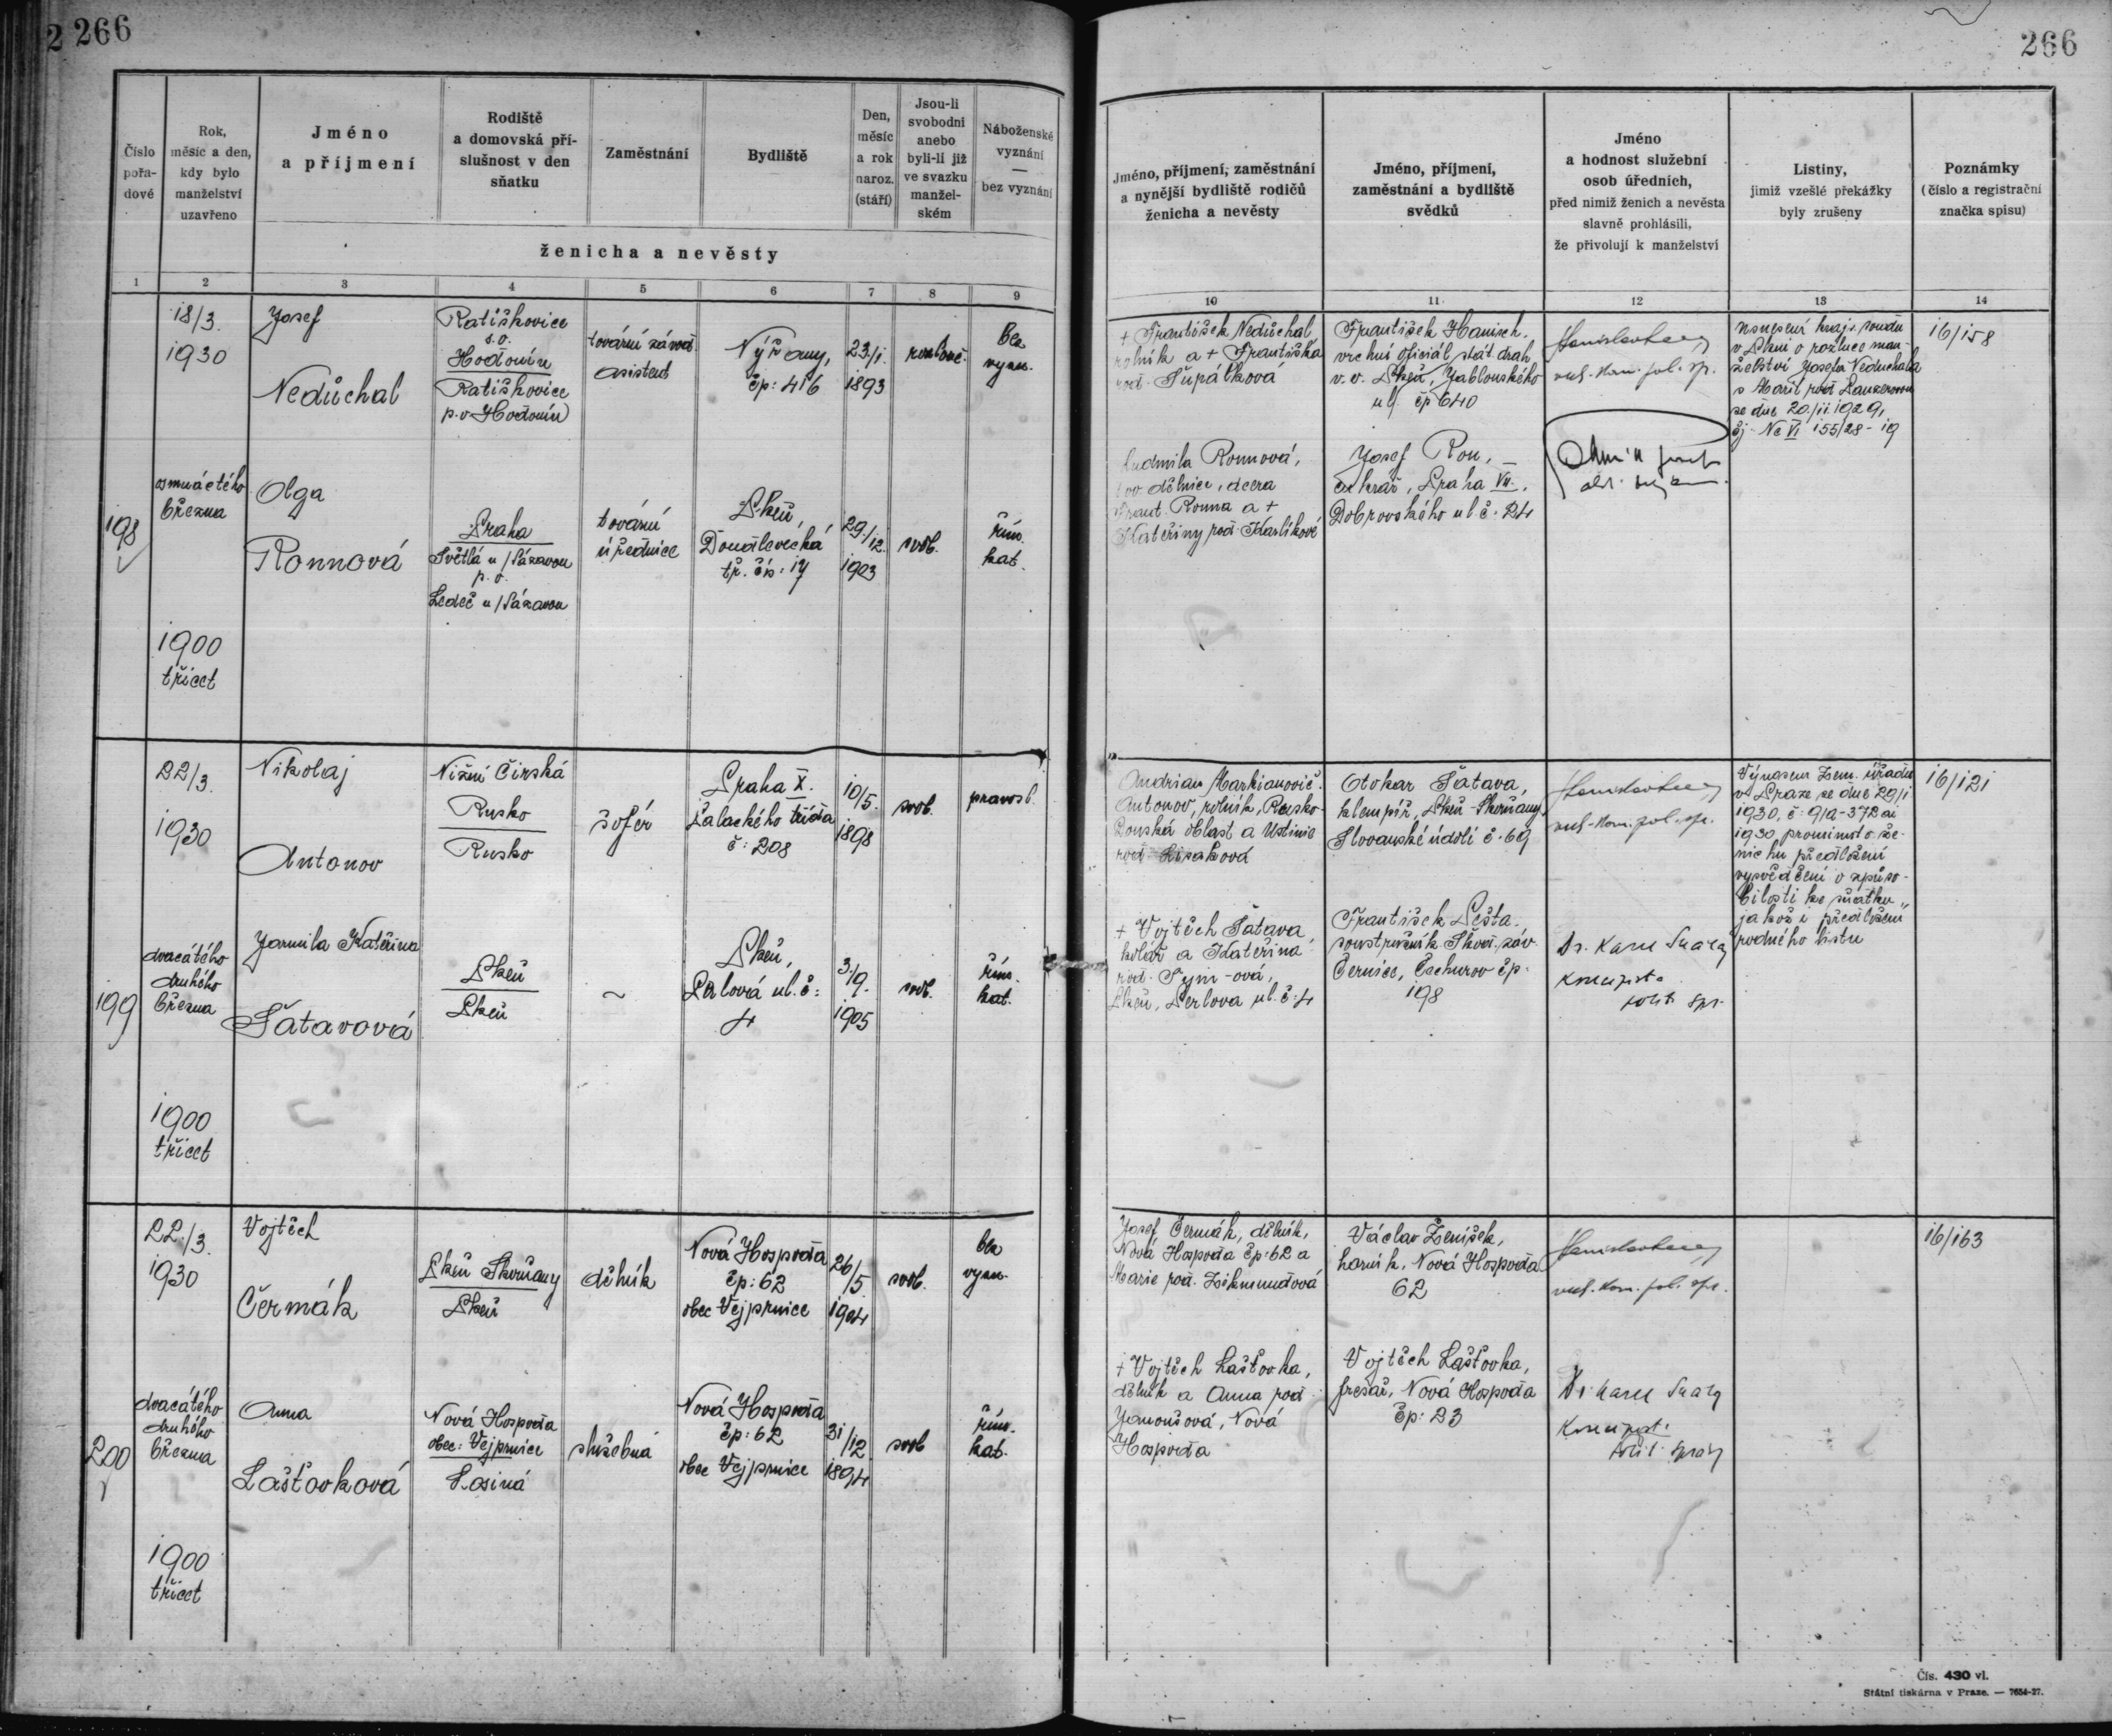 266
266
Číslo pořa-dové
Rok, měsíc a den, kdy bylo manželství uzavřeno
Jméno a příjmení
Rodiště a domovská pří-slušnost v den sňatku
Zaměstnání
Bydliště
Den, měsíc a rok naroz. (stáří)
Jsou-li svobodni anebo byli-li již ve svazku manžel-ském
Náboženské vyznání — bez vyznání
ženicha a nevěsty
Jméno, příjmení, zaměstnání a nynější bydliště rodičů ženicha a nevěsty
Jméno, příjmení, zaměstnání a bydliště svědků
Jméno a hodnost služební osob úředních, před nimiž ženich a nevěsta slavně prohlásili, že přivolují k manželství
Listiny, jimiž vzešlé překážky byly zrušeny
Poznámky (číslo a registrační značka spisu)
1 2 3 4 5 6 7 8 9 10 11 12 13 14
198
18/3.
1930
osmnáctého
března
1900
třicet
Josef
Nedůchal
Ratiškovice
s.o.
Hodonín
Ratiškovice
p.o Hodonín
tovární závod.
asistent
Nýřany,
čp: 416
23./1.
1893
rozlouč.
bez
vyzn.
+ František Nedůchal
rolník a + Františka
rod. Šupálková
František Hanisch,
vrchní oficiál stát. drah
v. v. Plzeň, Jablonského
ul. čp 640
usnesení kraj. soudu
v Plzni o rozluce man-
želství Josefa Nedůchala
s Marií rod.
ze dne 20./11. 1929,
čj. Nc VI 155/28-19
16/158
Olga
Ronnová
Praha
Světlá n/Sázavou
p. o.
Ledeč n/Sázavou
tovární
úřednice
Plzeň,
Doudlevecká
tř. čís. 17
29./12.
1903
svob.
řím.
kat.
Ludmila Ronnová,
tov. dělnice, dcera
Frant. Ronna a +
Kateřiny rod. Karlíkové
Josef Ron,
cukrář, Praha VII.,
Dobrovského ul. č. 24
199
22/3.
1930
dvacátého
druhého
března
1900
třicet
Nikolaj
Antonov
Nižní Čirská
Rusko
Rusko
šofér
Praha X.
Palackého třída
č: 208
10/5.
1898
svob.
pravosl.
Andrian Markianovič
Antonov, rolník, Rusko-
Donská oblast a Ustinie
rod. Lisaková
Otokar Šatava,
klempíř, Plzeň-Skvrňany
Slovanské údolí č. 69
Výnosem Zem. úřadu
v Praze, ze dne 29/1
1930, č: 9/a-372 ai
1930, prominuto že-
nichu předložení
vysvědčení o způso-
bilosti ke sňatku,
jakož i předložení
rodného listu
16/121
Jarmila Kateřina
Šatavová
Plzeň
Plzeň
~
Plzeň,
Perlová ul. č:
4
3./9.
1905
svob.
řím.
kat.
+ Vojtěch Šatava
kolář a Kateřina
rod.
Plzeň, Perlova ul. č: 4
František Pešta
soustružník Škod. záv.
Černice, čp.
198
Dr. Karel
koncipista
polit. spr.
200
22./3.
1930
dvacátého
druhého
března
1900
třicet
Vojtěch
Čermák
Plzeň Skvrňany
Plzeň
dělník
Nová Hospoda
čp: 62
obec Vejprnice
26/5.
1904
svob.
bez
vyzn.
Josef Čermák, dělník,
Nová Hospoda čp: 62 a
Marie rod. Zikmundová
Václav Ženíšek,
horník, Nová Hospoda
62
16/163
Anna
Lašťovková
Nová Hospoda
obec: Vejprnice
Losiná
služebná
Nová Hospoda
čp: 62
obec Vejprnice
31/12
1894
svob
řím.
kat.
+ Vojtěch Lašťovka,
dělník a Anna rod
Janoušová, Nová
Hospoda
Vojtěch Lašťovka,
fresař, Nová Hospoda
čp: 23
Dr. Karel
koncipist.
polit. správy
Čís. 430 vl.
Státní tiskárna v Praze. — 7654-27.